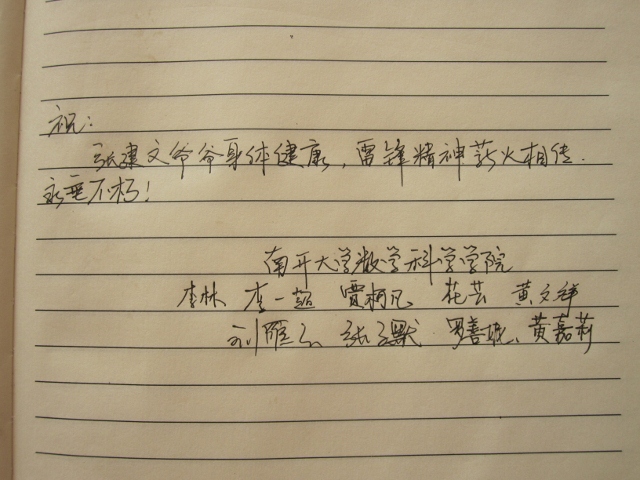 祝：
张建文爷爷身体健康，雷锋精神薪火相传.
永垂不朽！
南开大学数学科学学院
李林 李一 贾 花芸 黄文
刘 张 罗 、黄嘉莉